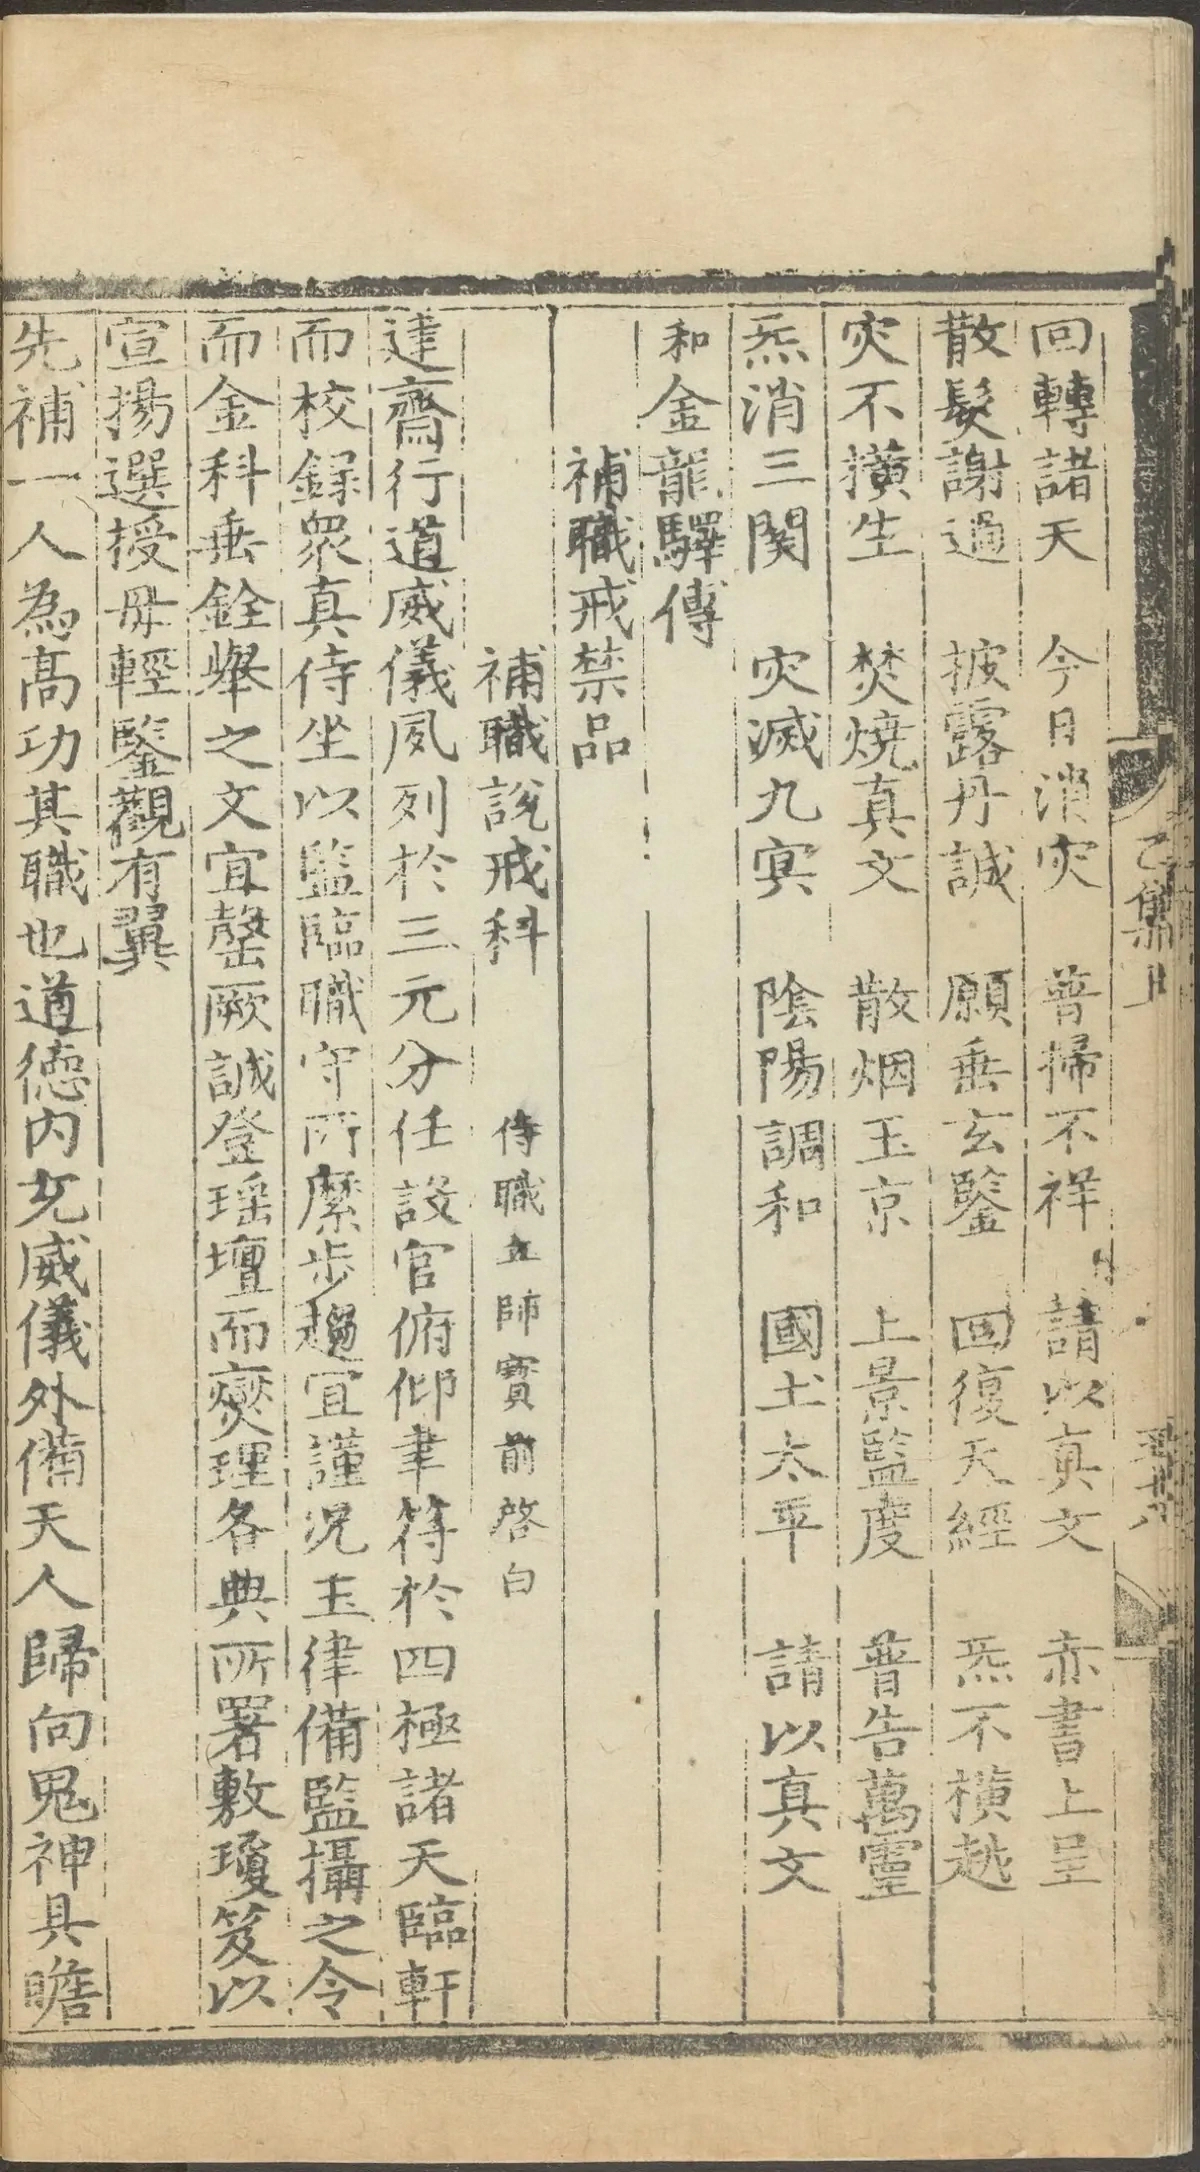 回轉諸天　今日消灾　普掃不祥　請以真文　赤書上呈
散髮謝過　披露丹誠　願垂玄鑒　回復天經　炁不橫越
灾不橫生　焚燒真文　散烟玉京　上景監度　普告萬靈
炁消三関　灾滅九冥　陰陽調和　國土太平　請以真文
和金龍驛傳
補職戒禁品
補職說戒科　侍職立師寶前啓白
建齋行道威儀夙列於三元分任設官俯仰聿符於四極諸天臨軒
而校錄衆真侍坐以監臨職守所縻步趨宜謹況玉律備監攝之令
而金科垂銓舉之文宜罄厥誠登瑶壇而爕理各典所署敷瓊笈以
宣揚選授毋輕鑒觀有翼
先補一人為高功其職也道德内充威儀外備天人歸向鬼神具瞻
乙集上